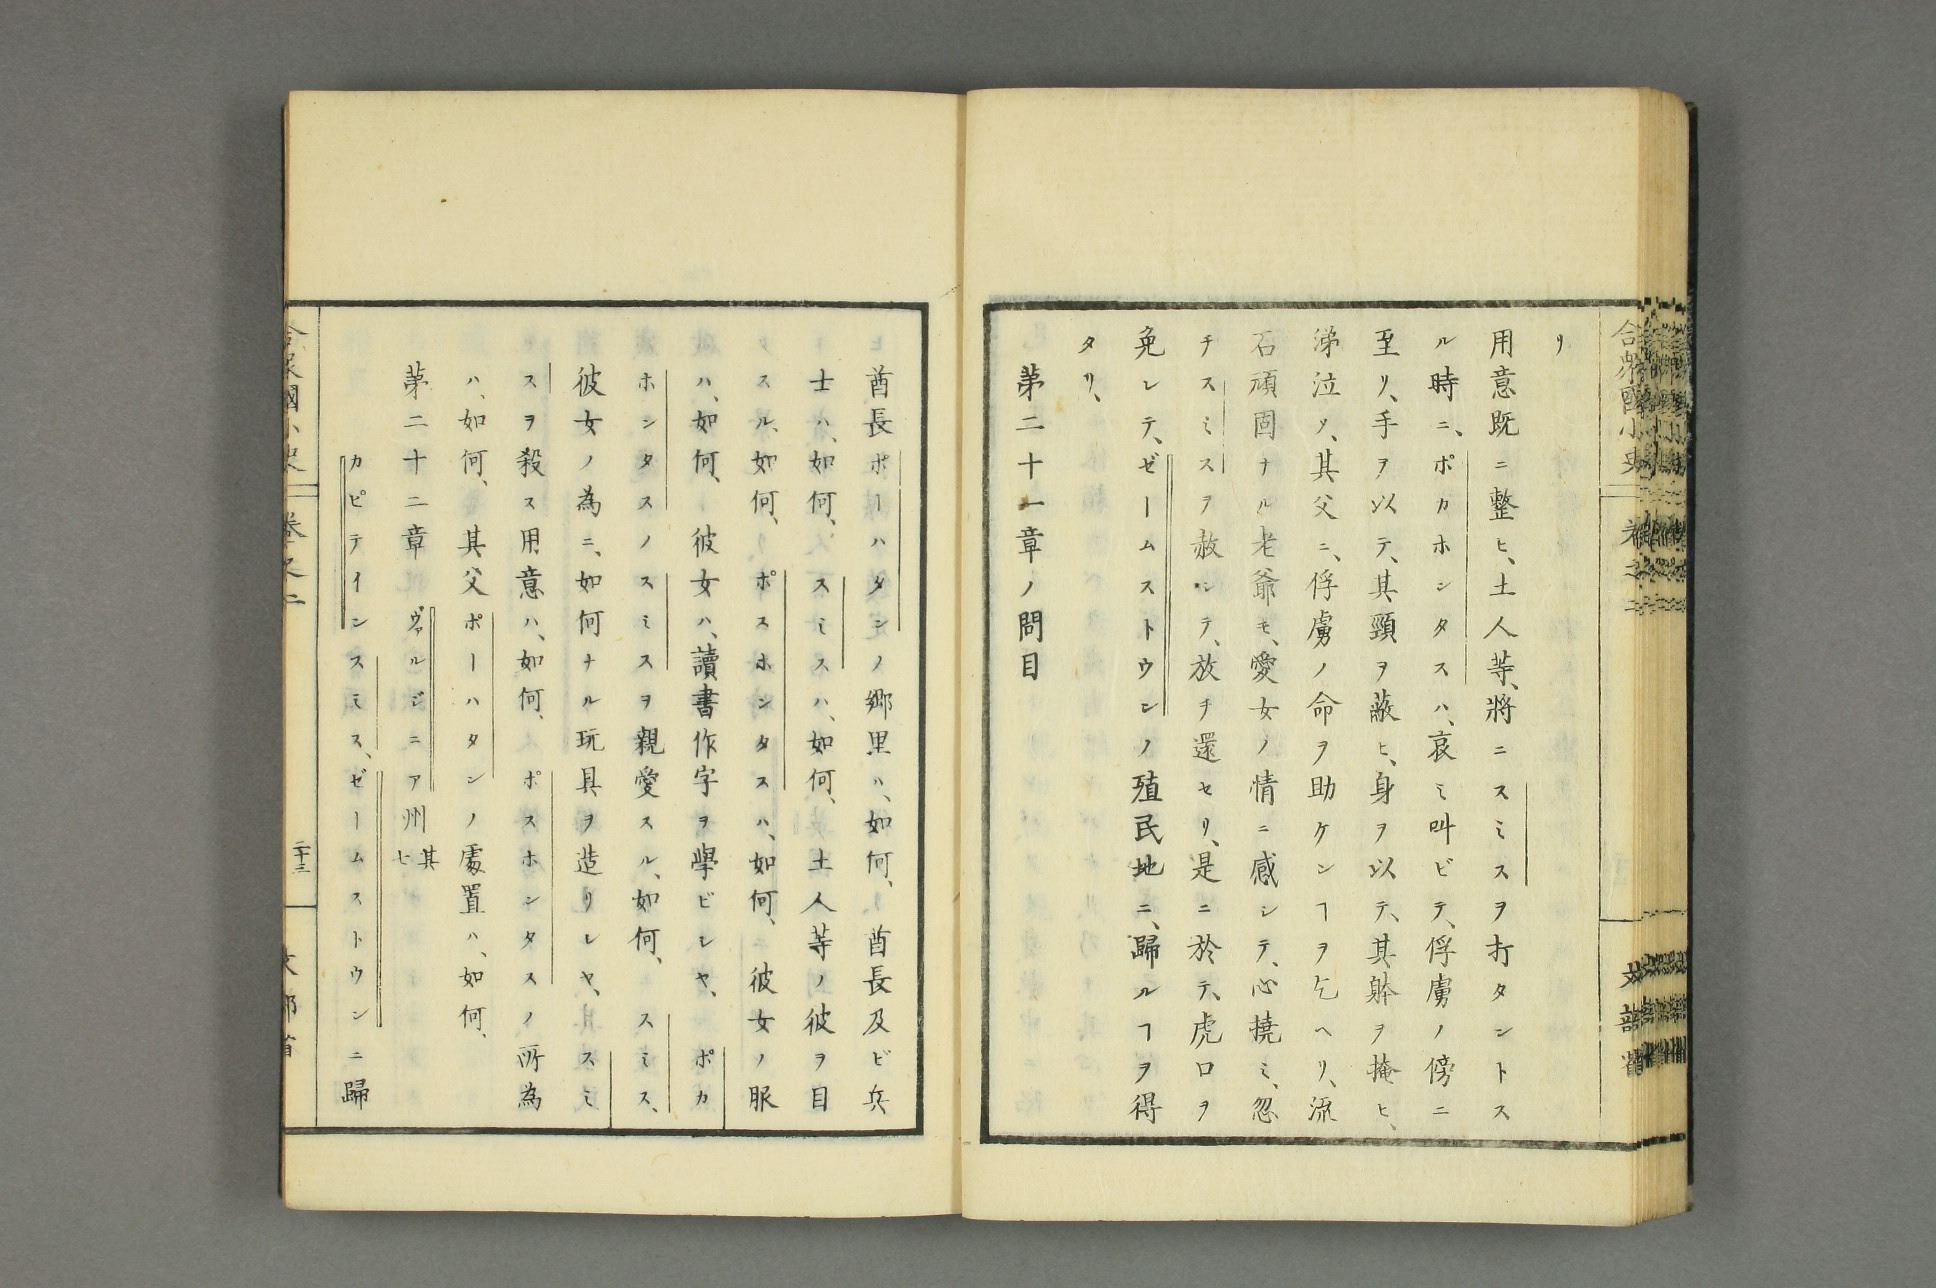 合衆國小史
卷之二
文部省
リ
用意既ニ整ヒ、土人等、將ニスミスヲ打タントス
ル時ニ、ポカホンタスハ、哀ミ叫ビテ、俘虜ノ傍ニ
至リ、手ヲ以テ、其頸ヲ蔽ヒ、身ヲ以テ、其躰ヲ掩ヒ、
涕泣シ、其父ニ、俘虜ノ命ヲ助ケンヿヲ乞ヘリ、流
石頑固ナル老爺モ、愛女ノ情ニ感シテ、心撓ミ、忽
チスミスヲ赦シテ、放チ還セリ、是ニ於テ、虎口ヲ
免レテ、ゼームストウンノ殖民地ニ、歸ルヿヲ得
タリ、
第二十一章ノ問目
酋長ポーハタンノ郷里ハ、如何、酋長及ビ兵
士ハ、如何、スミスハ、如何、土人等ノ彼ヲ目
スル、如何、ポスホンタスハ、如何、彼女ノ服
ハ、如何、彼女ハ、讀書作字ヲ學ビシヤ、ポカ
ホンタスノスミスヲ親愛スル、如何、スミス、
彼女ノ為ニ、如何ナル玩具ヲ造リシヤ、スミ
スヲ殺ス用意ハ、如何、ポスホンタスノ所為
ハ、如何、其父ポーハタンノ處置ハ、如何、
第二十二章 ヴァルジニア州 其七
カピテインスミス、ゼームストウンニ歸
合衆國小史
卷之二
二十三
文部省